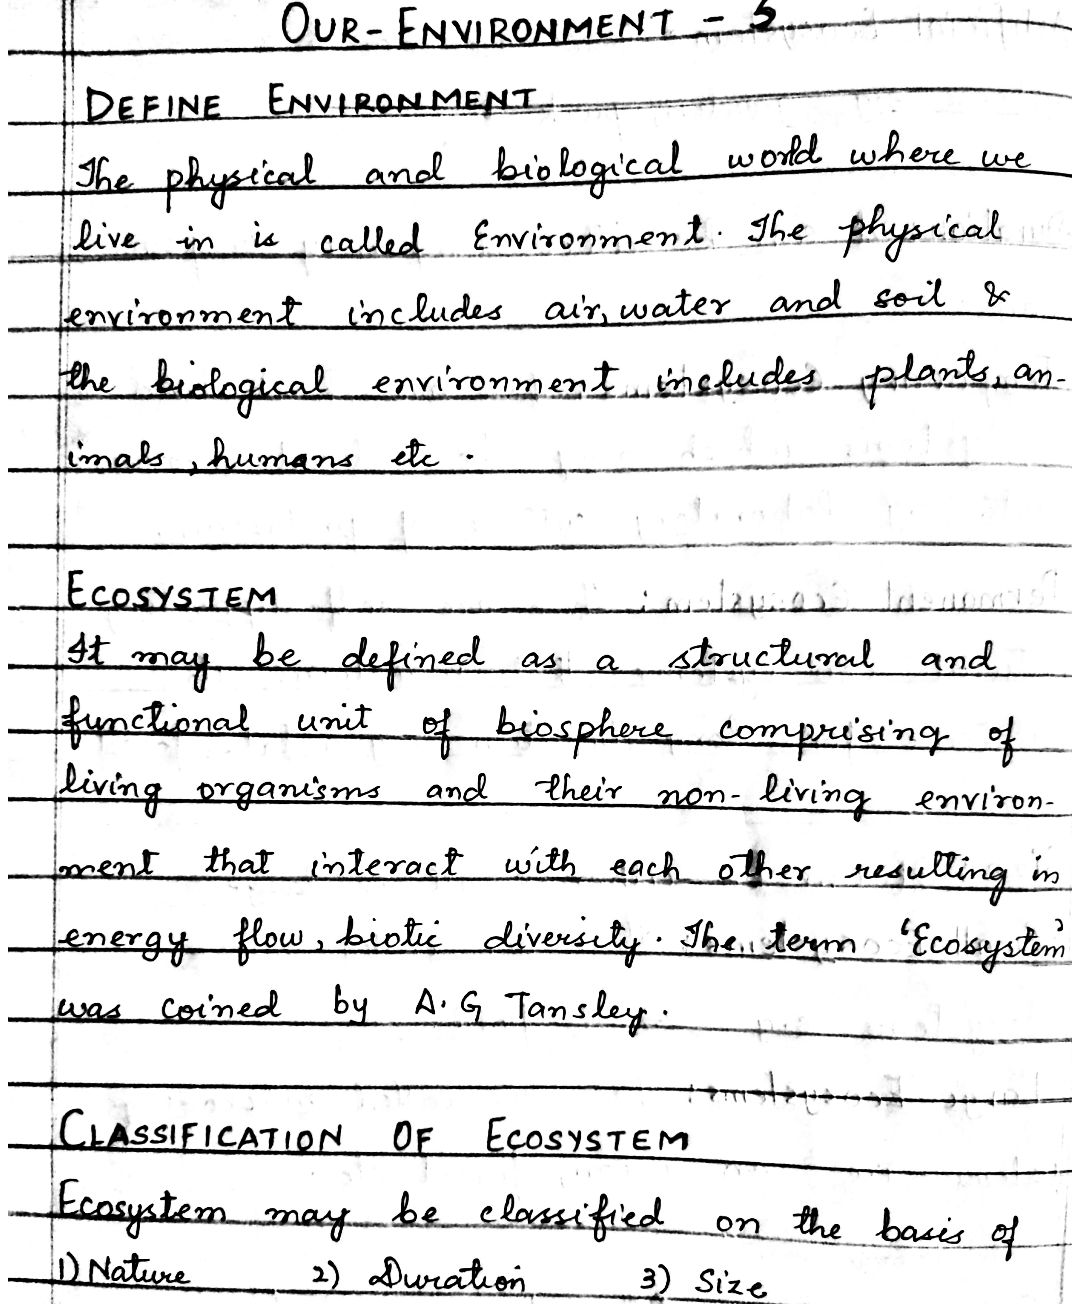 OUR-ENVIRONMENT - 5
DEFINE ENVIRONMENT
The physical and biological world where we
live in is called Environment. The physical
environment includes air, water and soil &
the biological environment includes plants, an-
imals, humans etc.
ECOSYSTEM
It may be defined as a structural and
functional unit of biosphere comprising of
living organisms and their non-living environ-
ment that interact with each other resulting in
energy flow, biotic diversity. The term 'Ecosystem'
was coined by A.G Tansley.
CLASSIFICATION OF ECOSYSTEM
Ecosystem may be classified on the basis of
1) Nature 2) Duration 3) Size